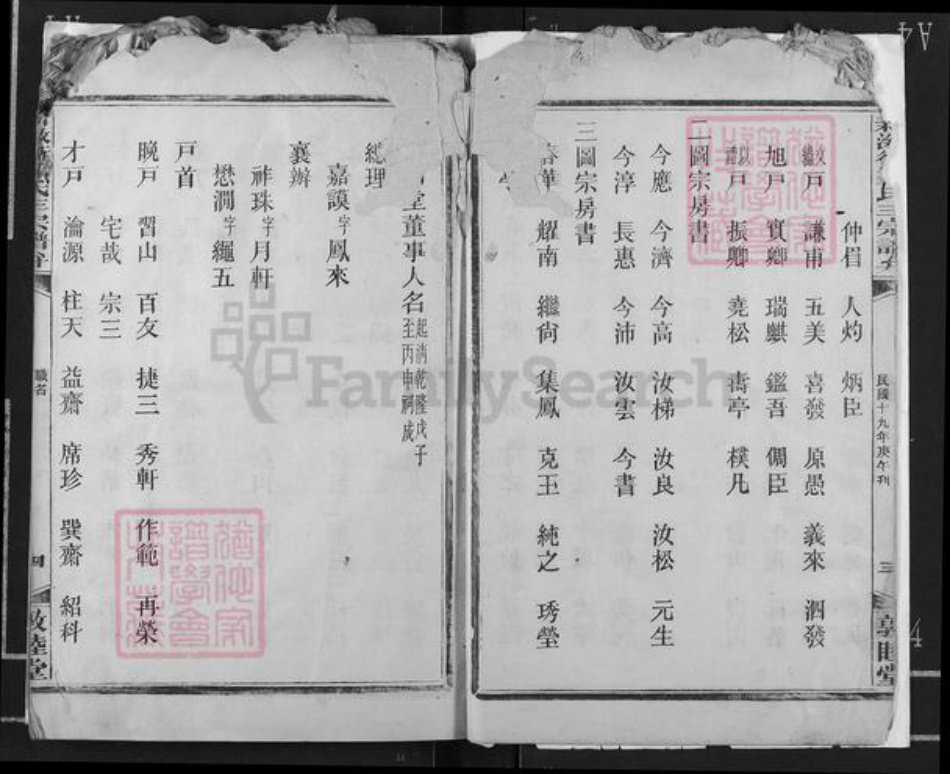 仲眉 人灼 炳臣
戶 謙甫 五美 喜發 原愚 義來 泗發
旭戶 質卿 瑞麒 鑑吾 倜臣
戶 振卿 堯松 壽亭 樸凡
二圖宗房書
今應 今濟 今高 汝梯 汝良 汝松 元生
今淳 長惠 今沛 汝雲 今書
三圖宗房書
春華 耀南 繼尙 集鳳 克王 純之 琇瑩
民國十九年庚午刊
三
敦睦堂
堂董事人名 起清乾隆戊子至丙申祠成
總理
嘉謨字鳳來
襄辦
祚珠字月軒
懋澗字繩五
戶首
晚戶 習山 百友 捷三 秀軒 作範 再榮
宅哉 宗三
才戶 瀹源 柱天 益齋 席珍 巽齋 紹科
職名
四
敦睦堂
FamilySearch